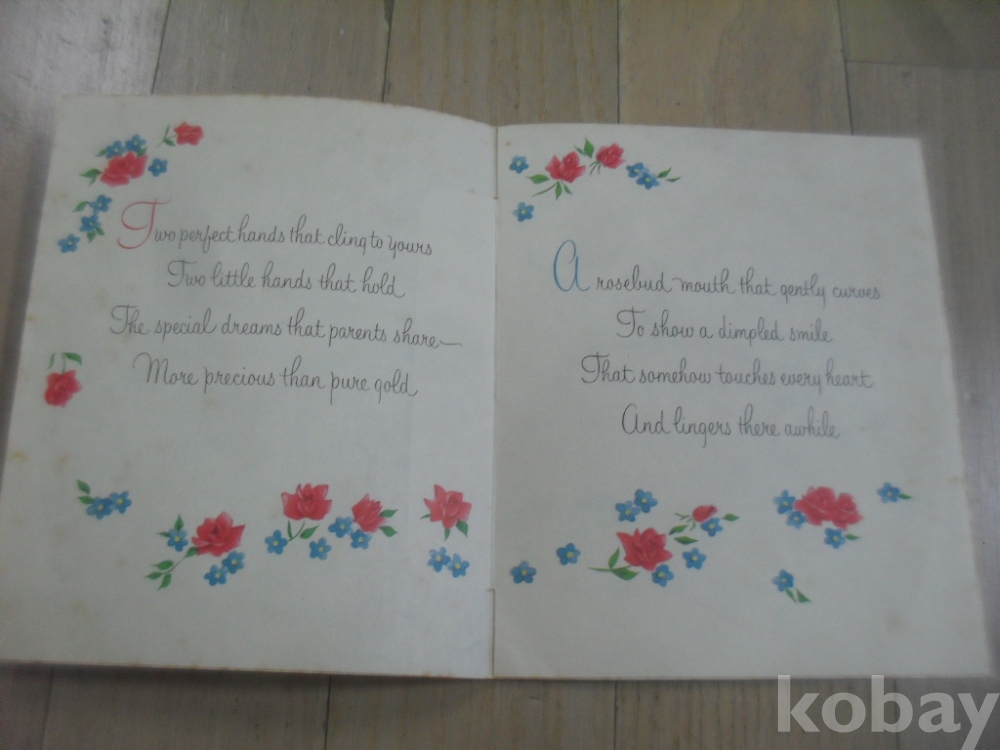 Two perfect hands that cling to yours
Two little hands that hold
The special dreams that parents share—
More precious than pure gold
A rosebud mouth that gently curves
To show a dimpled smile
That somehow touches every heart
And lingers there awhile
kobay